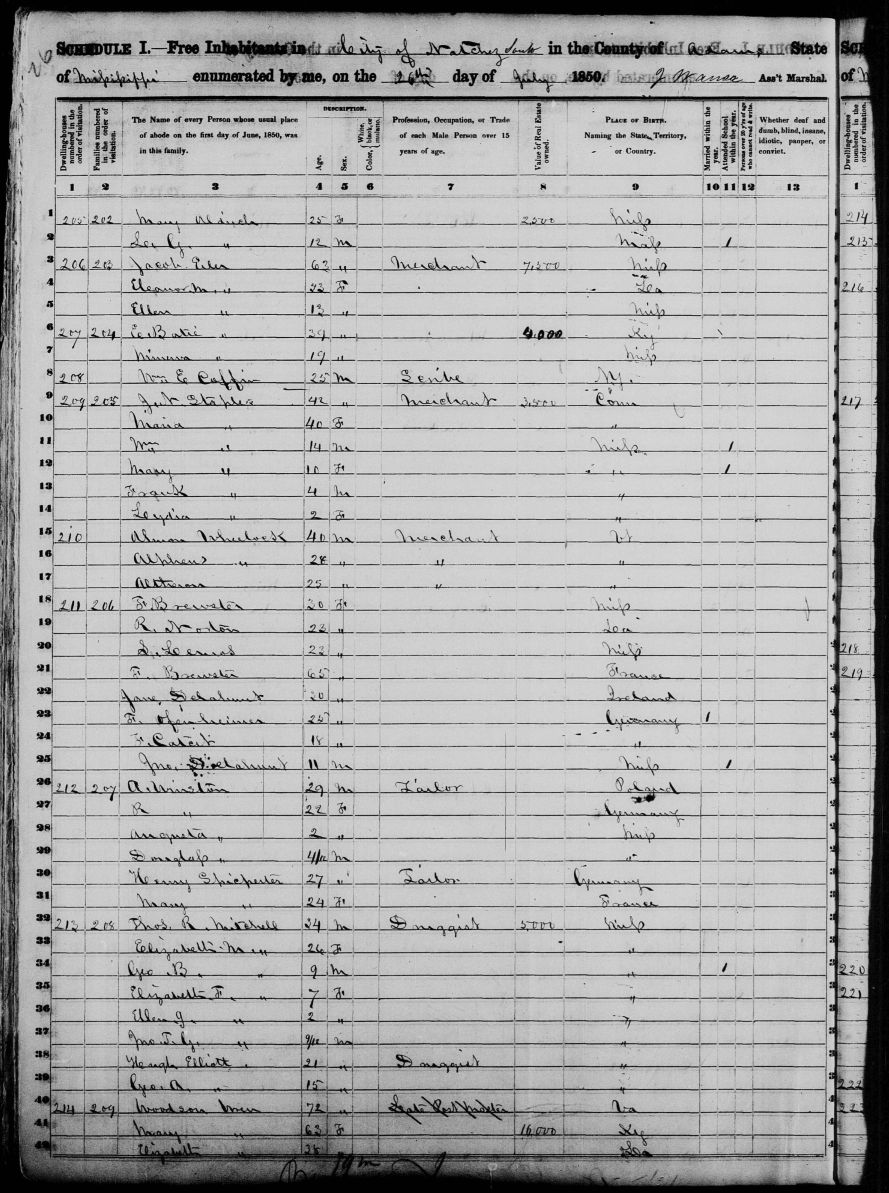 SCHEDULE I.—Free Inhabitants in City of Natchez South in the County of Adams State
of Mississippi enumerated by me, on the 26th day of July 1850. Ass't Marshal.
DESCRIPTION.
Dwelling-houses numbered in the order of visitation.
Families numbered in the order of visitation.
The Name of every Person whose usual place of abode on the first day of June, 1850, was in this family.
Age.
Sex.
Color, White, black, or mulatto.
Profession, Occupation, or Trade of each Male Person over 15 years of age.
Value of Real Estate owned.
PLACE OF BIRTH. Naming the State, Territory, or Country.
Married within the year.
Attended School within the year.
Persons over 20 y'rs of age who cannot read & write.
Whether deaf and dumb, blind, insane, idiotic, pauper, or convict.
1 2 3 4 5 6 7 8 9 10 11 12 13
1 205 202 Mary 25 F 2,500 Miss
2 Le. G. " 12 M Miss 1
3 206 203 Jacob Eiler 63 " Merchant 7,500 Miss
4 Eleanor M. " 33 F La
5 Ellen " 13 " Miss
6 207 204 " 39 " 4,000 Ky
7 Minerva " 19 " Miss
8 208 Wm E Coffin 25 M Scribe NY.
9 209 205 Staples 42 " Merchant 3,500 Conn
10 Maria " 40 F "
11 Wm " 14 M Miss 1
12 Mary " 10 F " 1
13 Frank " 4 M "
14 Leydia " 2 F "
15 210 Almon Wheelock 40 M Merchant Vt
16 Alpheus " 28 " " "
17 25 " " "
18 211 206 F. Brewster 30 F Miss
19 R. Norton 23 " La
20 23 " Miss
21 F. Brewster 65 " France
22 Jane Delahunt 30 " Ireland
23 F. 25 " Germany 1
24 F. 18 " "
25 Jno. Delahunt 11 M Miss 1
26 212 207 A. Winston 29 M Tailor Poland
27 R " 22 F Germany
28 Augusta " 2 " Miss
29 Douglass " 4/12 M "
30 Henry 27 " Tailor Germany
31 Mary " 24 F France
32 213 208 Thos. R. Mitchell 34 M Druggist 5,000 Miss
33 Elizabeth M. " 26 F "
34 Geo B. " 9 M " 1
35 Elizabeth F. " 7 F "
36 Ellen J. " 2 " "
37 Jno. T. G. " 9/12 M "
38 Hugh Elliott 21 " Druggist "
39 Geo. A. " 15 " "
40 214 209 Woodson Wren 72 " Late Post Master Va
41 Mary " 63 F 16,000 Ky
42 Elizabeth " 28 " La
SCH
of M
Dwelling-houses numbered in the order of visitation.
1
214
215
216
217
218
219
220
221
222
223